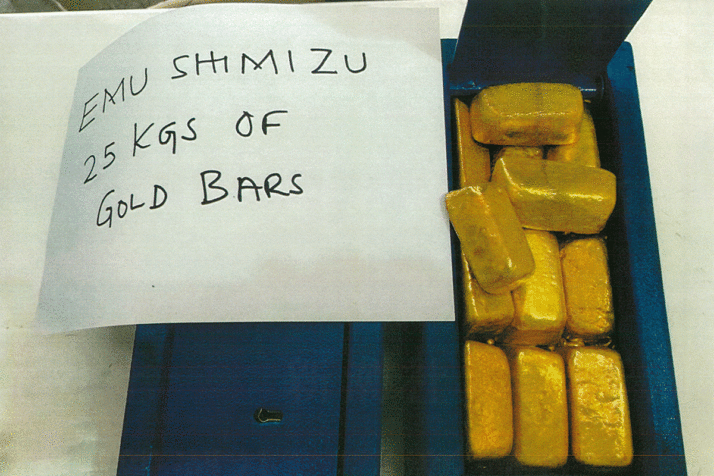 EMU SHIMIZU
25 KGS OF
GOLD BARS